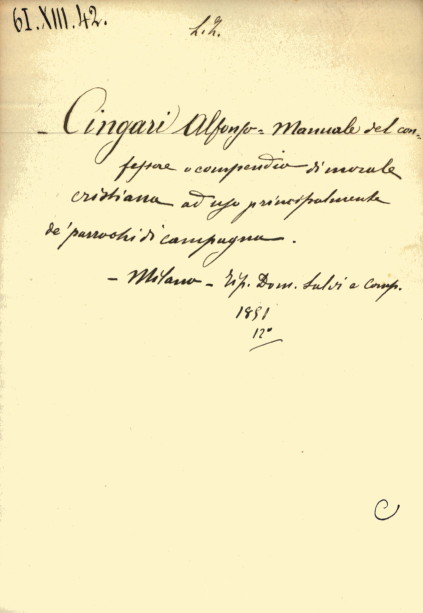 61.XIII.42.
- Cingari Alfonso = Manuale del con=
fessore o compendio di morale
cristiana ad uso principalmente
de' parrochi di campagna.
- Milano - Tip. Dom. Salvi e Comp.
1851
12°
C